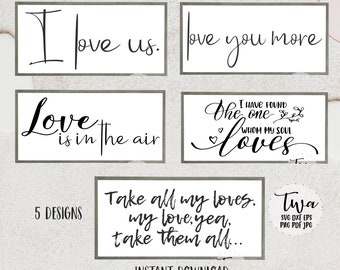 I love us.
love you more
Love
is in the air
I HAVE FOUND
the one
WHOM MY SOUL
loves
Take all my loves,
my love, yea,
take them all...
5 DESIGNS
Twa
SVG DXF EPS
PNG PDF JPG
INSTANT DOWNLOAD